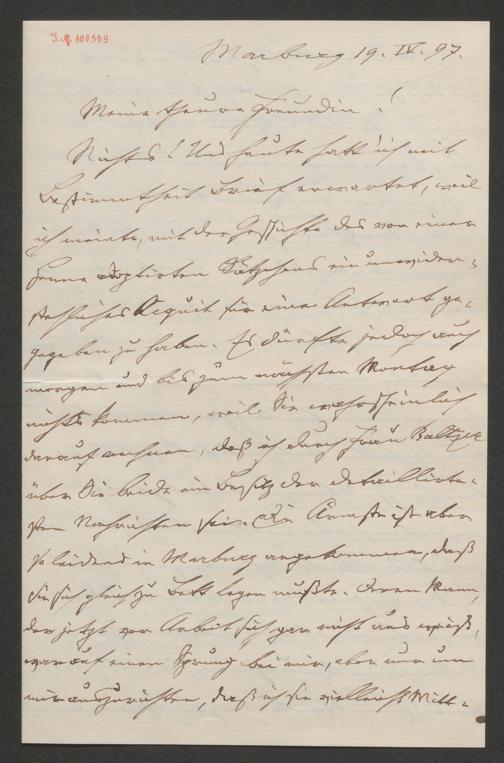 J.N. 100309
Marburg 19. IV. 97.
Meine theure Freundin!
Nichts! Und heute hatt' ich mit
Bestimmtheit Brief erwartet, weil
ich meinte, mit der Geschichte des von einer
Henne adoptirten Kätzchens ein unwider-
stehliches Acquit für eine Antwort ge-
gegeben zu haben. Es dürfte jedoch auch
morgen und bis zum nächsten Montag
nichts kommen, weil Sie wahrscheinlich
darauf rechnen, daß ich durch Frau Baltzer
über Sie beide im Besitz der detaillirte-
sten Nachrichten sei. Die Ärmste ist aber
so leidend in Marburg angekommen, daß
sie sich gleich zu Bett legen mußte. Deren Mann,
der jetzt vor Arbeit sich gar nicht aus weiß,
war auf einen Sprung bei mir, aber nur um
mir auszurichten, daß ich sie vielleicht Mitt-